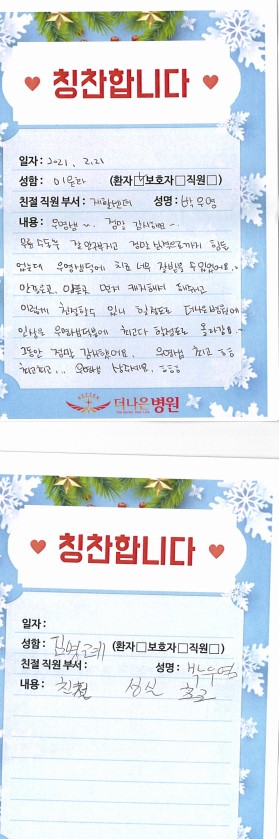 칭찬합니다
일자: 2021. 2.21
성함: 이윤라 (환자☑보호자□직원□)
친절 직원 부서: 재활센터 성명: 박우영
내용: 우영쌤~. 정말 감사해요~.
무릎 수술후 잘 안구부러지고 정말 심적으로까지 힘든
없는데 우영쌤덕에 치료 너무 잘받을 수 있었어요.
안프로로, 아픈곳 먼저 캐치해서 해주시고
이렇게 친절할수 있나 할정도로 더나은병원에
인상은 우영쌤덕분에 최고다 할정도로 올라갔음~
그동안 정말 감사했어요. 우영쌤 최고 ㅎㅎ
최고최고... 우영쌤 상주세요. ㅎㅎㅎ
더나은병원
칭찬합니다
일자:
성함: (환자□보호자□직원□)
친절 직원 부서: 성명: 박우영
내용: 친절 성실 최고